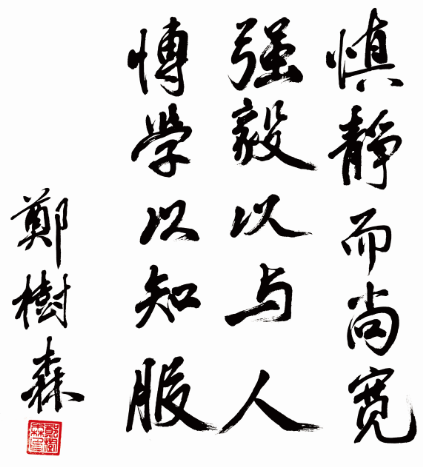 慎静而尚宽
强毅以与人
博学以知服
鄭樹森